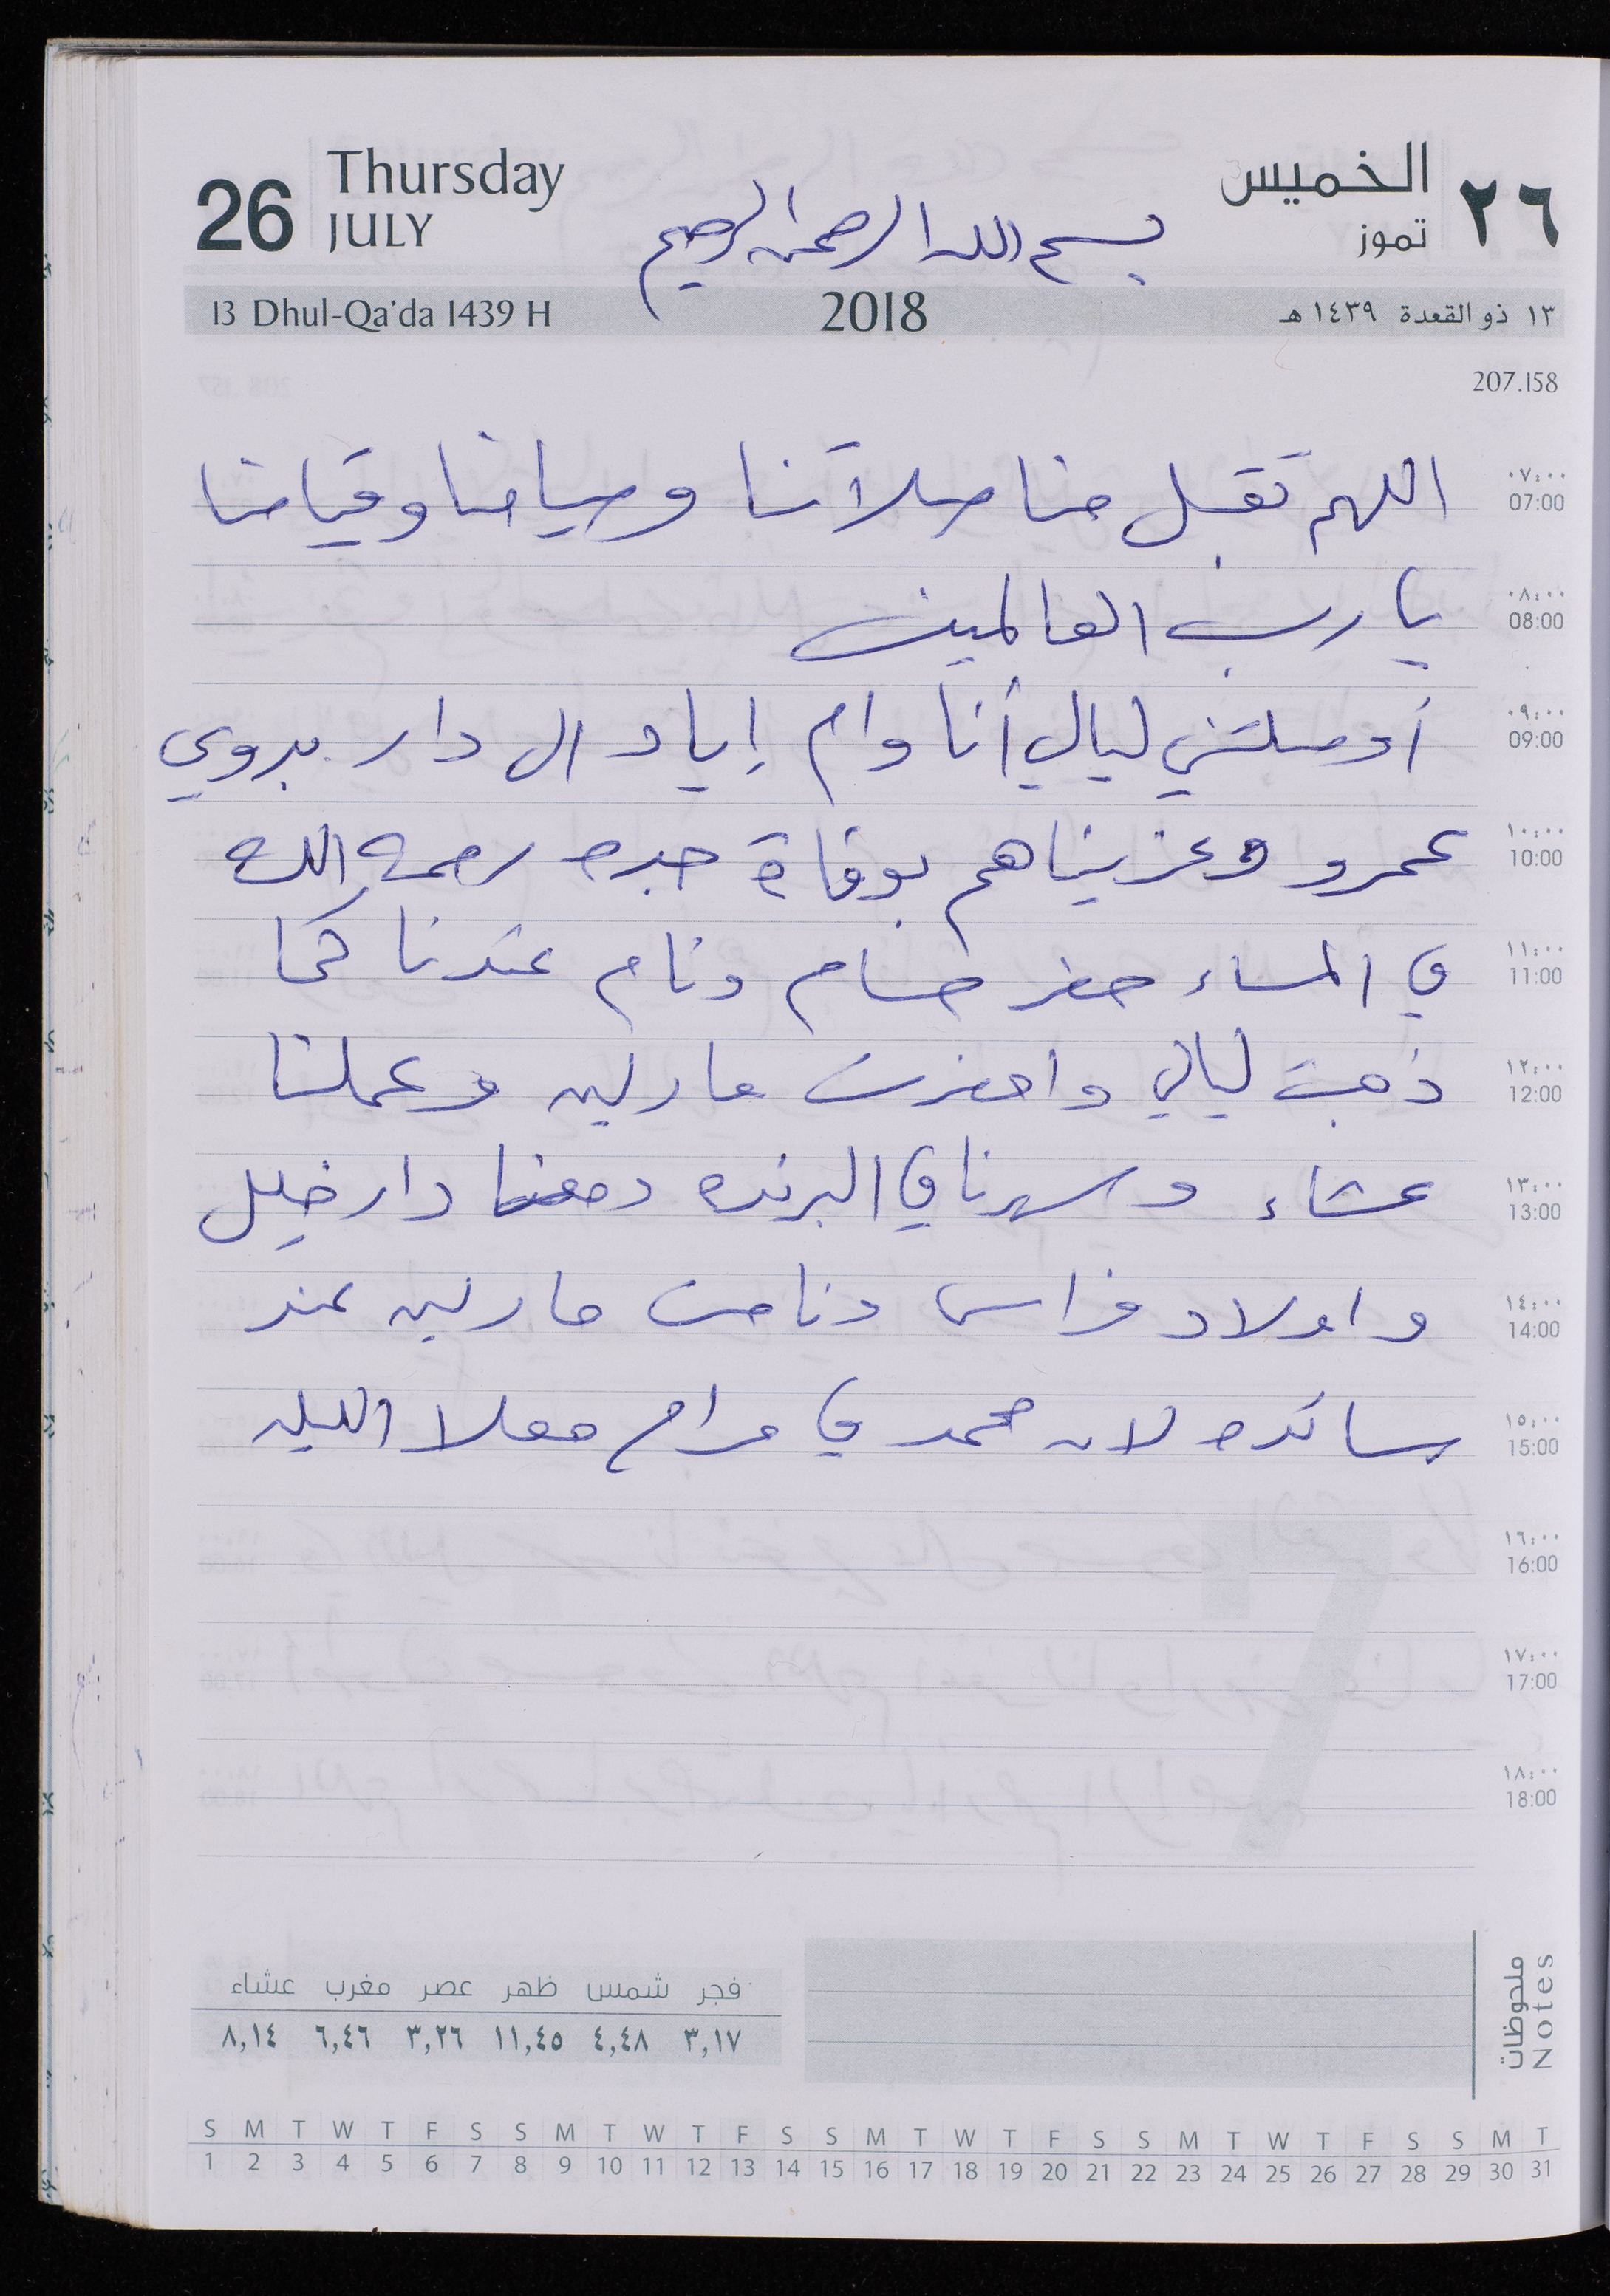 26 Thursday JULY
الخميس ٢٦
تموز
بسم الله الرحمن الرحيم
13 Dhul-Qa'da 1439 H 2018 ١٣ ذو القعدة ١٤٣٩ هـ
207.158
٠٧:٠٠ 07:00 اللهم تقبل منا صلاتنا وصيامنا وقيامنا
٠٨:٠٠ 08:00 يا رب العالمين
٠٩:٠٠ 09:00 أوصلتني ليالي أنا وام إياد الى دار بدوي
١٠:٠٠ 10:00 عمرو وعزيناهم بوفاة جده رحمه الله
١١:٠٠ 11:00 في المساء حضر حسام ونام عندنا كما
١٢:٠٠ 12:00 ذهبت ليالي واحضرت مارلين وعملنا
١٣:٠٠ 13:00 عشاء وسهرنا في البرنده ومعنا دار خليل
١٤:٠٠ 14:00 واولاد فراس ونامت مارلين عند
١٥:٠٠ 15:00 سانده لان محمد في مرام معلا الليله
١٦:٠٠ 16:00
١٧:٠٠ 17:00
١٨:٠٠ 18:00
ملحوظات
Notes
فجر شمس ظهر عصر مغرب عشاء
٣,١٧ ٤,٤٨ ١١,٤٥ ٣,٢٦ ٦,٤٦ ٨,١٤
S M T W T F S S M T W T F S S M T W T F S S M T W T F S S M T
1 2 3 4 5 6 7 8 9 10 11 12 13 14 15 16 17 18 19 20 21 22 23 24 25 26 27 28 29 30 31